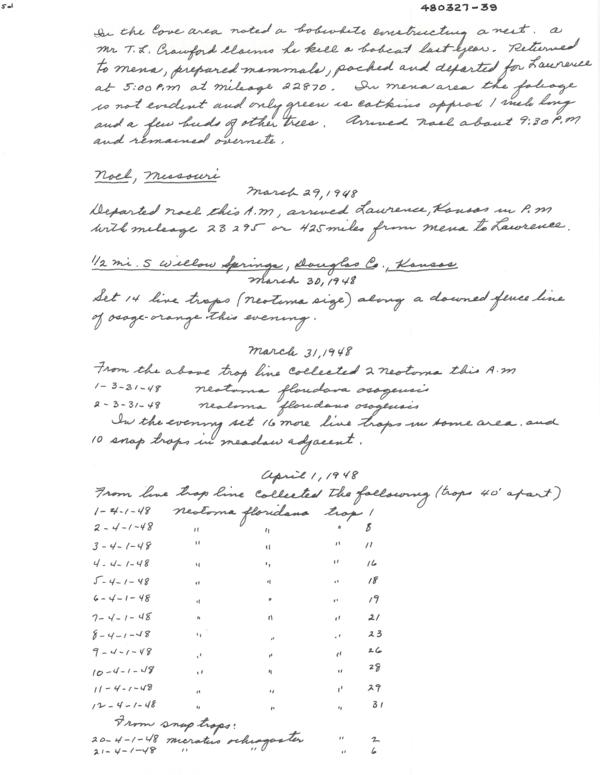 480327-39
In the Cove area noted a bobwhite constructing a nest. a
Mr T.L. Crawford claims he kill a bobcat last year. Returned
to mena, prepared mammals, packed and departed for Lawrence
at 5:00 P.M at mileage 22870. In mena area the foliage
is not evident and only green is catkins approx 1 inch long
and a few buds of other trees. Arrived Noel about 9:30 P.M
and remained overnite.
Noel, Missouri
March 29, 1948
Departed Noel this A.M, arrived Lawrence, Kansas in P.M
with mileage 23295 or 425 miles from mena to Lawrence.
1/2 mi. S Willow Springs, Douglas Co., Kansas
March 30, 1948
Set 14 live traps (neotoma size) along a downed fence line
of osage-orange this evening.
March 31, 1948
From the above trap line collected 2 neotoma this A.M
1-3-31-48 neotoma floridana osagensis
2-3-31-48 neotoma floridana osagensis
In the evening set 16 more live traps in same area. and
10 snap traps in meadow adjacent.
April 1, 1948
From live trap line collected the following (traps 40' apart)
1-4-1-48 neotoma floridana trap 1
2-4-1-48 " " " 8
3-4-1-48 " " " 11
4-4-1-48 " " " 16
5-4-1-48 " " " 18
6-4-1-48 " " " 19
7-4-1-48 " " " 21
8-4-1-48 " " " 23
9-4-1-48 " " " 26
10-4-1-48 " " " 28
11-4-1-48 " " " 29
12-4-1-48 " " " 31
From snap traps:
20-4-1-48 microtus ochrogaster " 2
21-4-1-48 " " " 6